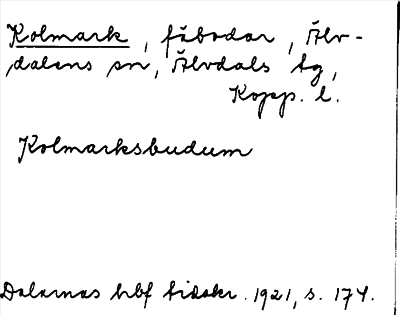 Kolmark, fäbodar, Älv-
dalens sn, Älvdals tg,
Kopp. l.
Kolmarksbudum
Dalarnas hbf tidskr. 1921, s. 174.